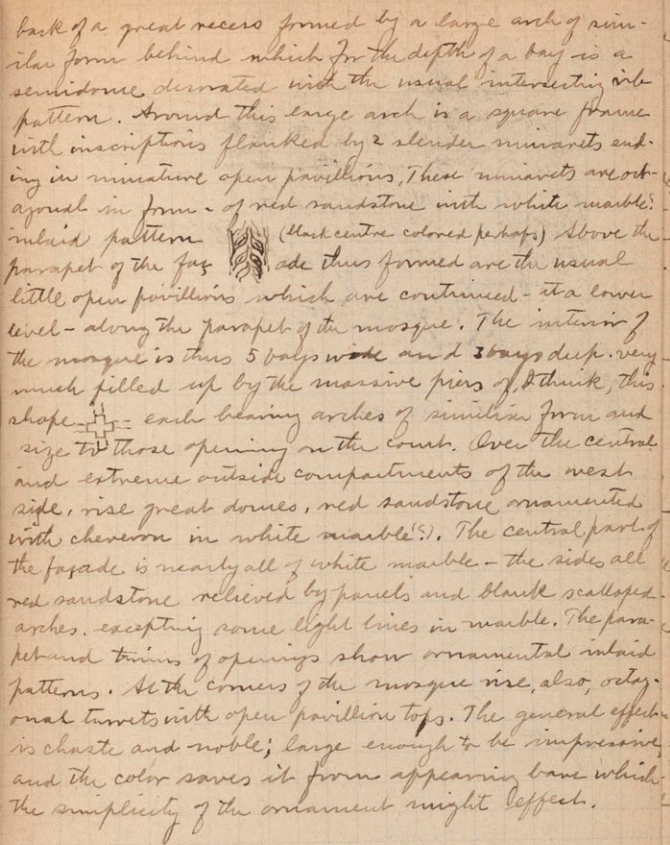 back of a great recess formed by a large arch of sim-
ilar form behind which for the depth of a bay is a
semidome decorated with the usual intersecting rib
pattern. Around this large arch is a square frame
with inscriptions flanked by 2 slender minarets end-
ing in miniature open pavillions, These minarets are oct-
agonal in form - of red sandstone with white marble?
inlaid pattern (black centre colored perhaps) Above the
parapet of the façade thus formed are the usual
little open pavillions which are continued - at a lower
level - along the parapet of the mosque. The interior of
the mosque is thus 5 bays wide and 3 bays deep. very
much filled up by the massive piers of, I think, this
shape each bearing arches of similiar form and
size to those opening on the court. Over the central
and extreme outside compartments of the west
side, rise great domes, red sandstone ornamented
with cheveron in white marble(?). The central part of
the façade is nearly all of white marble - the sides all
red sandstone relieved by panels and blank scalloped
arches. excepting some light lines in marble. The para-
pet and trims of openings show ornamental inlaid
patterns. At the corners of the mosque rise, also, octag-
onal turrets with open pavillion tops. The general effect
is chaste and noble; large enough to be impressive
and the color saves it from appearing bare which
the simplicity of the ornament might effect.